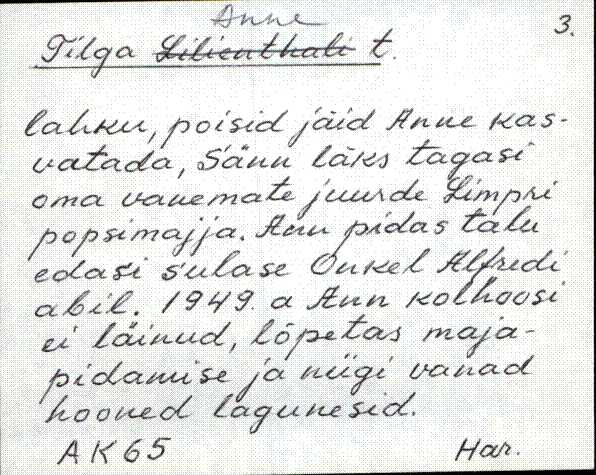 Anne
3.
Tilga Lilienthali t.
lahku, poisid jäid Anne kas-
vatada, Sänn läks tagasi
oma vanemate juurde Limpri
popsimajja. Ann pidas talu
edasi sulase Onkel Alfredi
abil. 1949. a Ann kolhoosi
ei läinud, lõpetas maja-
pidamise ja niigi vanad
hooned lagunesid.
AK65 Har.